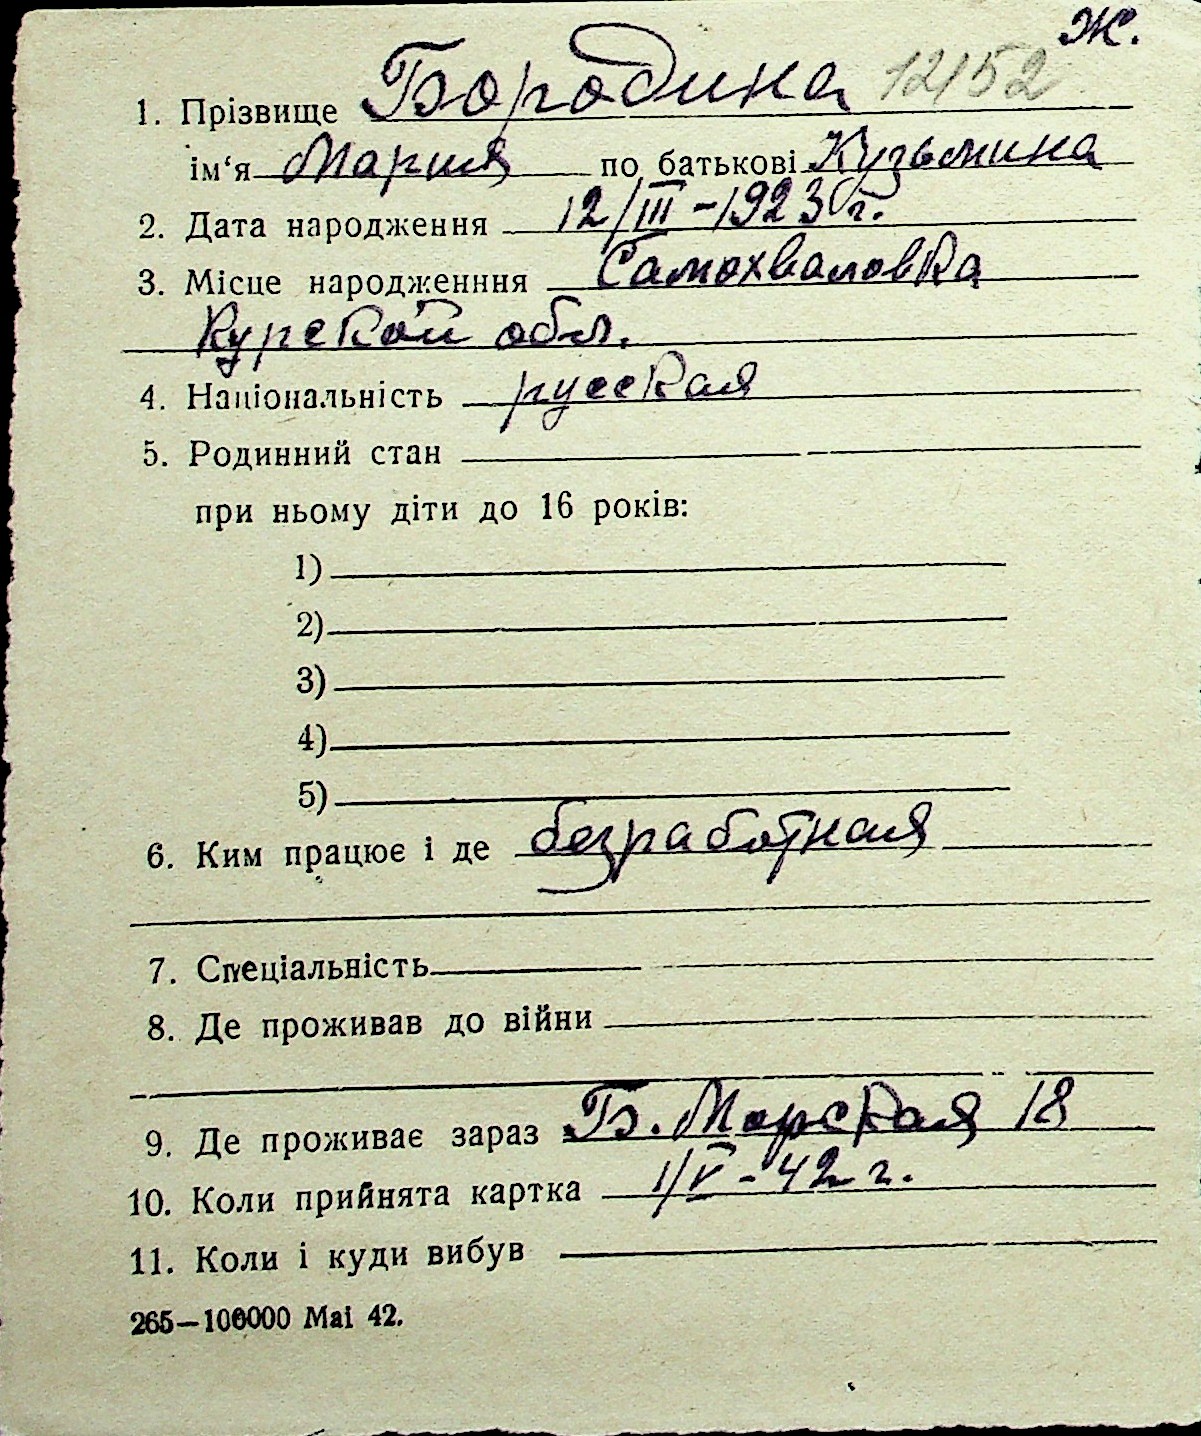 ж.
1. Прізвище Бородина 12152
ім‘я Мария по батькові Кузьминина
2. Дата народження 12/III-1923 г.
3. Місце народженння Самохваловка
Курской обл.
4. Національність русская
5. Родинний стан
при ньому діти до 16 років:
1)
2)
3)
4)
5)
6. Ким працює і де безработная
7. Спеціальність
8. Де проживав до війни
9. Де проживає зараз Б. Морская 18
10. Коли прийнята картка 1/V-42 г.
11. Коли і куди вибув
265—100000 Mai 42.